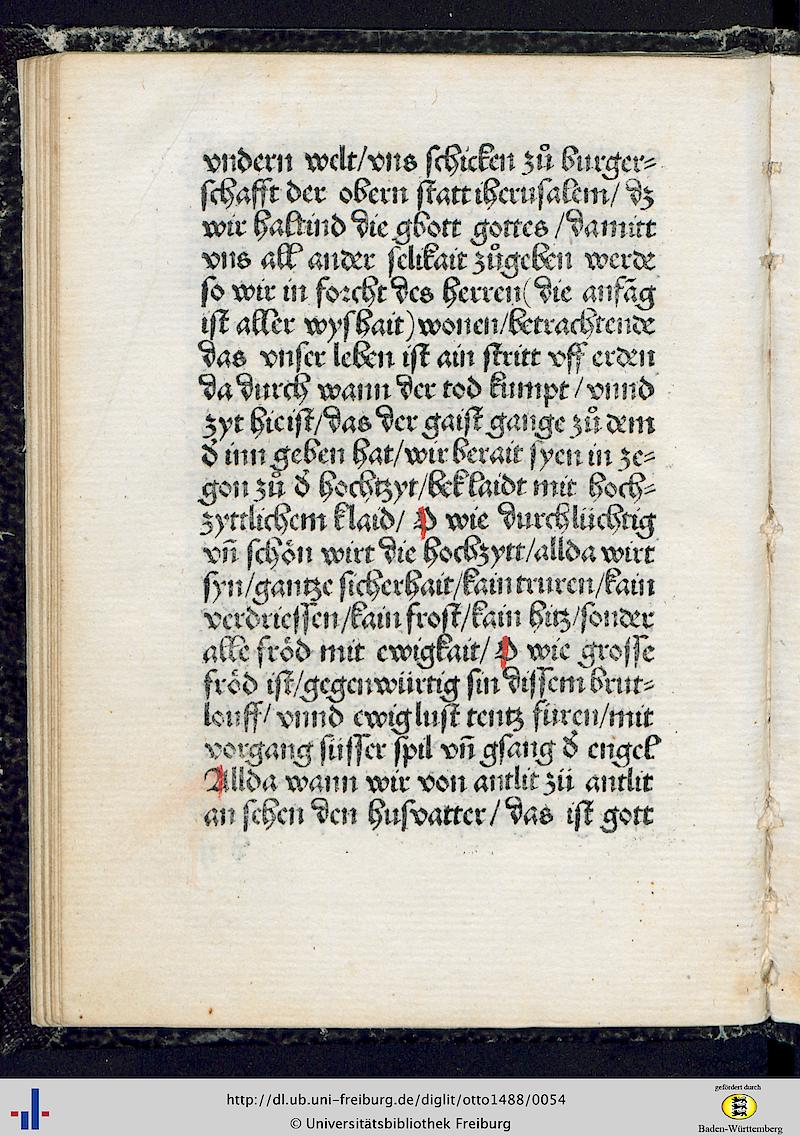 vndern welt/vns schicken zů burger⸗
schafft der obern statt iherusalem/ dz
wir haltind die gbott gottes /damitt
vns all ander selikait zůgeben werde
so wir in forcht des herren( die anfãg
ist aller wyshait)wonen/betrachtende
das vnser leben ist ain stritt vff erden
da durch wann der tod kumpt / vnnd
zyt hie ist/das der gaist gange zů dem
d̕ inn geben hat/wir berait syen in ze⸗
gon zů d̕ hochtzyt/beklaidt mit hoch⸗
zyttlichem klaid/ O wie durchlüchtig
vñ schön wirt die hochzytt/allda wirt
syn/gantze sicherhait/kain truren/kain
verdriessen/kain frost/kain hitz/sonder
alle fröd mit ewigkait/ O wie grosse
fröd ist/gegenwürtig sin dissem brut⸗
louff/ vnnd ewig lust tentz füren/mit
vorgang süsser spil vñ gsang d̕ engel
Allda wann wir von antlit zü antlit
an sehen den husvatter/ das ist gott
http://dl.ub.uni-freiburg.de/diglit/otto1488/0054
© Universitätsbibliothek Freiburg
gefördert durch
Baden-Württemberg